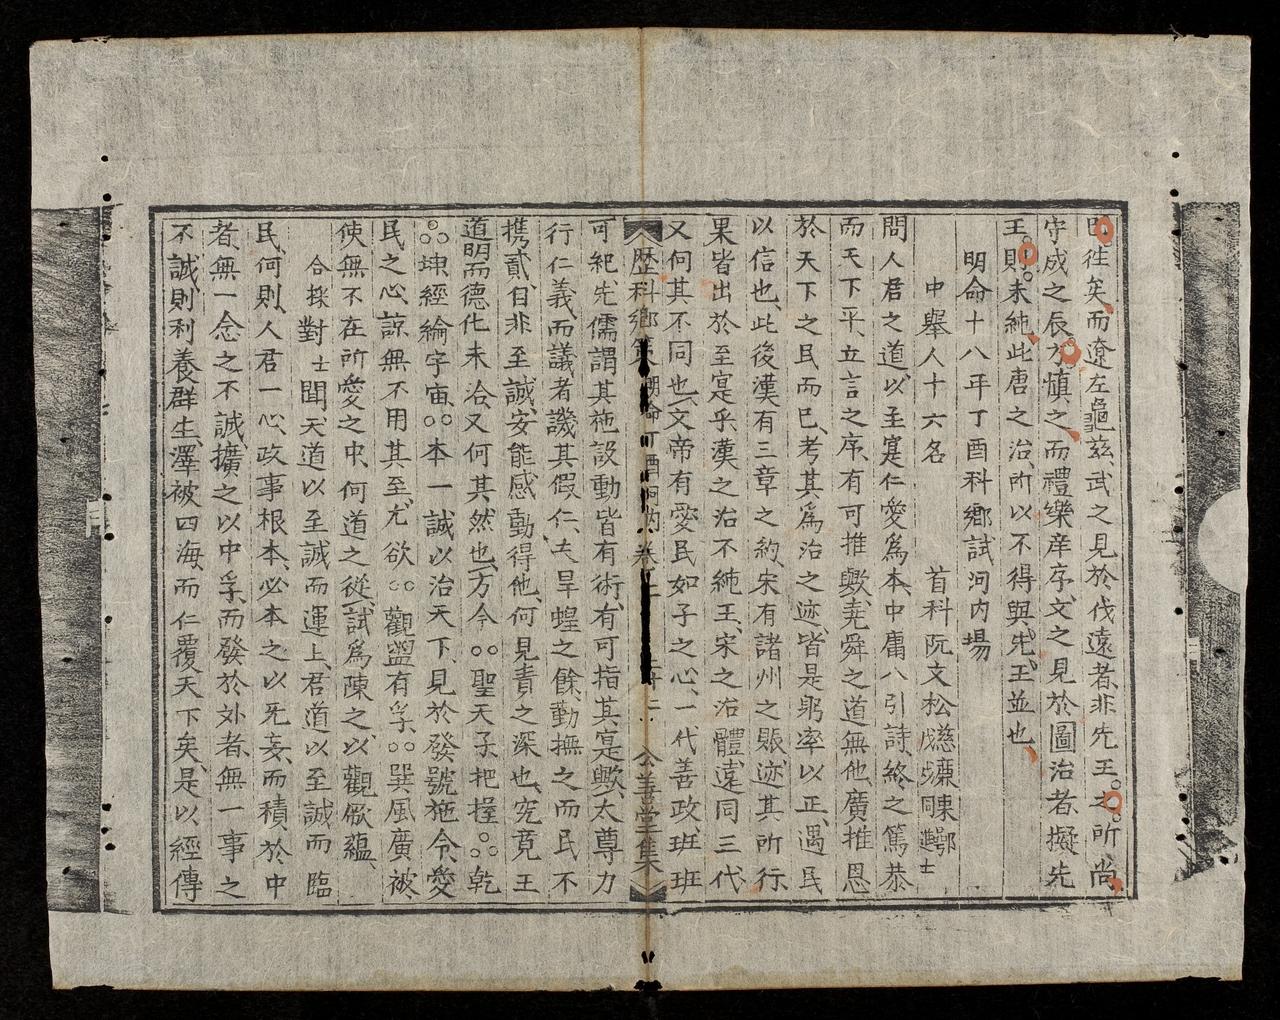 即往矣而遼左龜茲武之見於伐遠者非先王之所尚
守成之辰方慎之而禮樂庠序文之見於圖治者擬先
王則未純此唐之治所以不得與先王並也
明命十八年丁酉科鄉試河内場
中舉人十六名 首科阮文松慈廉東鄂進士
問人君之道以至寔仁愛爲本中庸八引詩終之篤恭
而天下平立言之序有可推歟堯舜之道無他廣推恩
於天下之民而已考其爲治之迹皆是躬率以正遇民
以信也此後漢有三章之約宋有諸州之賑迹其所行
果皆出於至寔乎漢之治不純王宋之治體遠同三代
又何其不同也文帝有愛民如子之心一代善政班班
歷科鄉策 明命丁酉河内 卷 公善堂集
可紀先儒謂其施設動皆有術有可指其寔歟太尊力
行仁義而議者譏其假仁夫旱蝗之餘勤撫之而民不
携貳自非至誠安能感動得他何見責之深也究竟王
道明而德化未洽又何其然也方今○○聖天子把握○○乾
○○坤經綸宇宙○○本一誠以治天下見於發號施令愛
民之心諒無不用其至尤欲○○觀盥有孚○○巽風廣被
使無不在所愛之中何道之從試爲陳之以觀厥蘊
合採對士聞天道以至誠而運上君道以至誠而臨
民何則人君一心政事根本必本之以无妄而積於中
者無一念之不誠擴之以中孚而發於外者無一事之
不誠則利養群生澤被四海而仁覆天下矣是以經傳